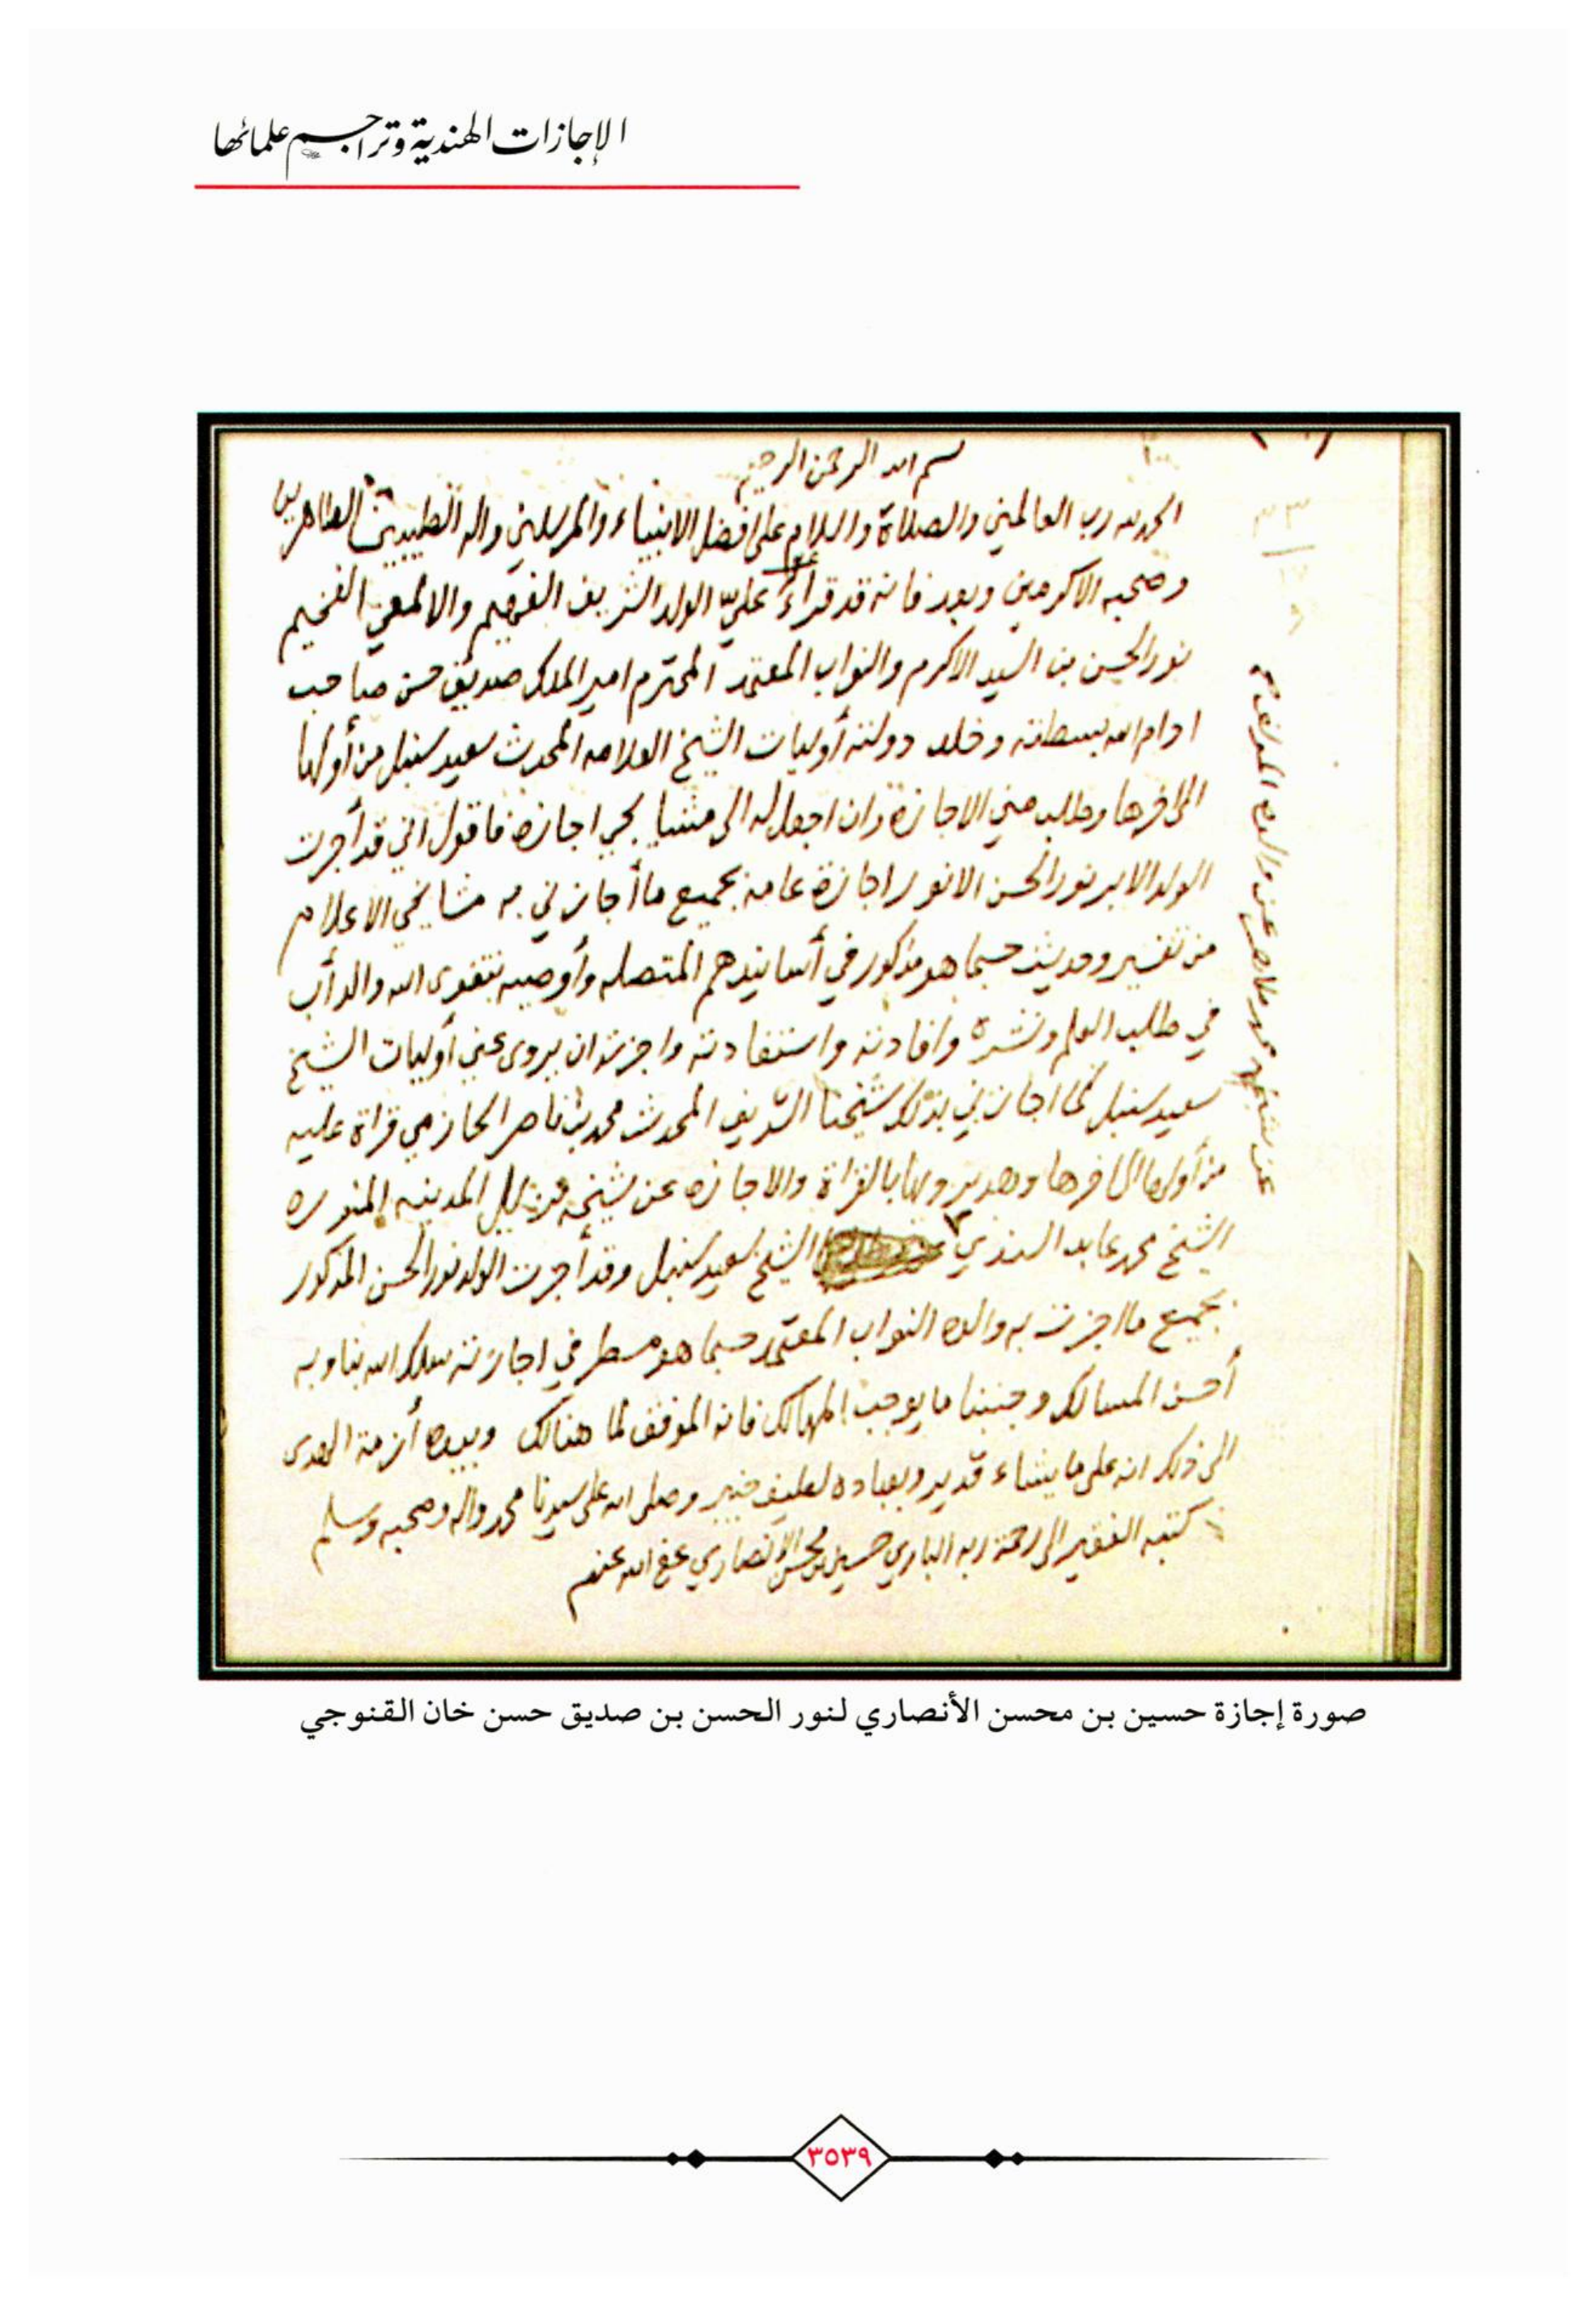 الإجازات الهندية وتراجم علمائها
بسم الله الرحمن الرحيم
الحمد لله رب العالمين والصلاة والسلام على افضل الانبياء والمرسلين واله الطيبين الطاهرين
وصحبه الاكرمين وبعد فانه قد قراء علي الولد الشريف الفهيم والالمعي الفخيم
نور الحسن بن السيد الاكرم والنواب المعتمد المحترم امير الملك صديق حسن صاحب
ادام الله سلطانه وخلد دولته أوليات الشيخ العلامه المحدث سعيد سنبل من أولها
الى اخرها وطلب مني الاجازة وان اجعل له الى مشايخي اجازة فاقول اني قد أجرت
الولد الابر نور الحسن الانور اجازة عامة بجميع ما أجازني به مشايخي الاعلام
من تفسير وحديث حسبما هو مذكور في أسانيدهم المتصله وأوصيه بتقوى الله والدأب
في طلب العلم ونشره وافادته واستفادته واجزته ان يروى عني أوليات الشيخ
سعيد سنبل كما اجازني بذلك شيخنا الشريف المحدث محمد بن ناصر الحازمي قراة عليه
من أولها الى اخرها وهو يرويها بالقراة والاجازه عن شيخه نزيل المدينه المنوره
الشيخ محمد عابد السندي الشيخ سعيد سنبل وقد أجرت الولد نور الحسن المذكور
بجميع ما اجزت به والده النواب المعتمد حسبما هو مسطر في اجازته سلك الله بنا وبه
أحسن المسالك وجنبنا ما يوجب المهالك فانه الموفق لما هنالك وبيده أزمة الهدى
الى ذلك انه على ما يشاء قدير وبعباده لطيف خبير وصلى الله على سيدنا محمد واله وصحبه وسلم
كتبه الفقير الى رحمة ربه الباري حسين بن محسن الانصاري عفى الله عنهم
عن شيخه محمد طاهر عن والده المؤلف
صورة إجازة حسين بن محسن الأنصاري لنور الحسن بن صديق حسن خان القنوجي
٣٥٣٩